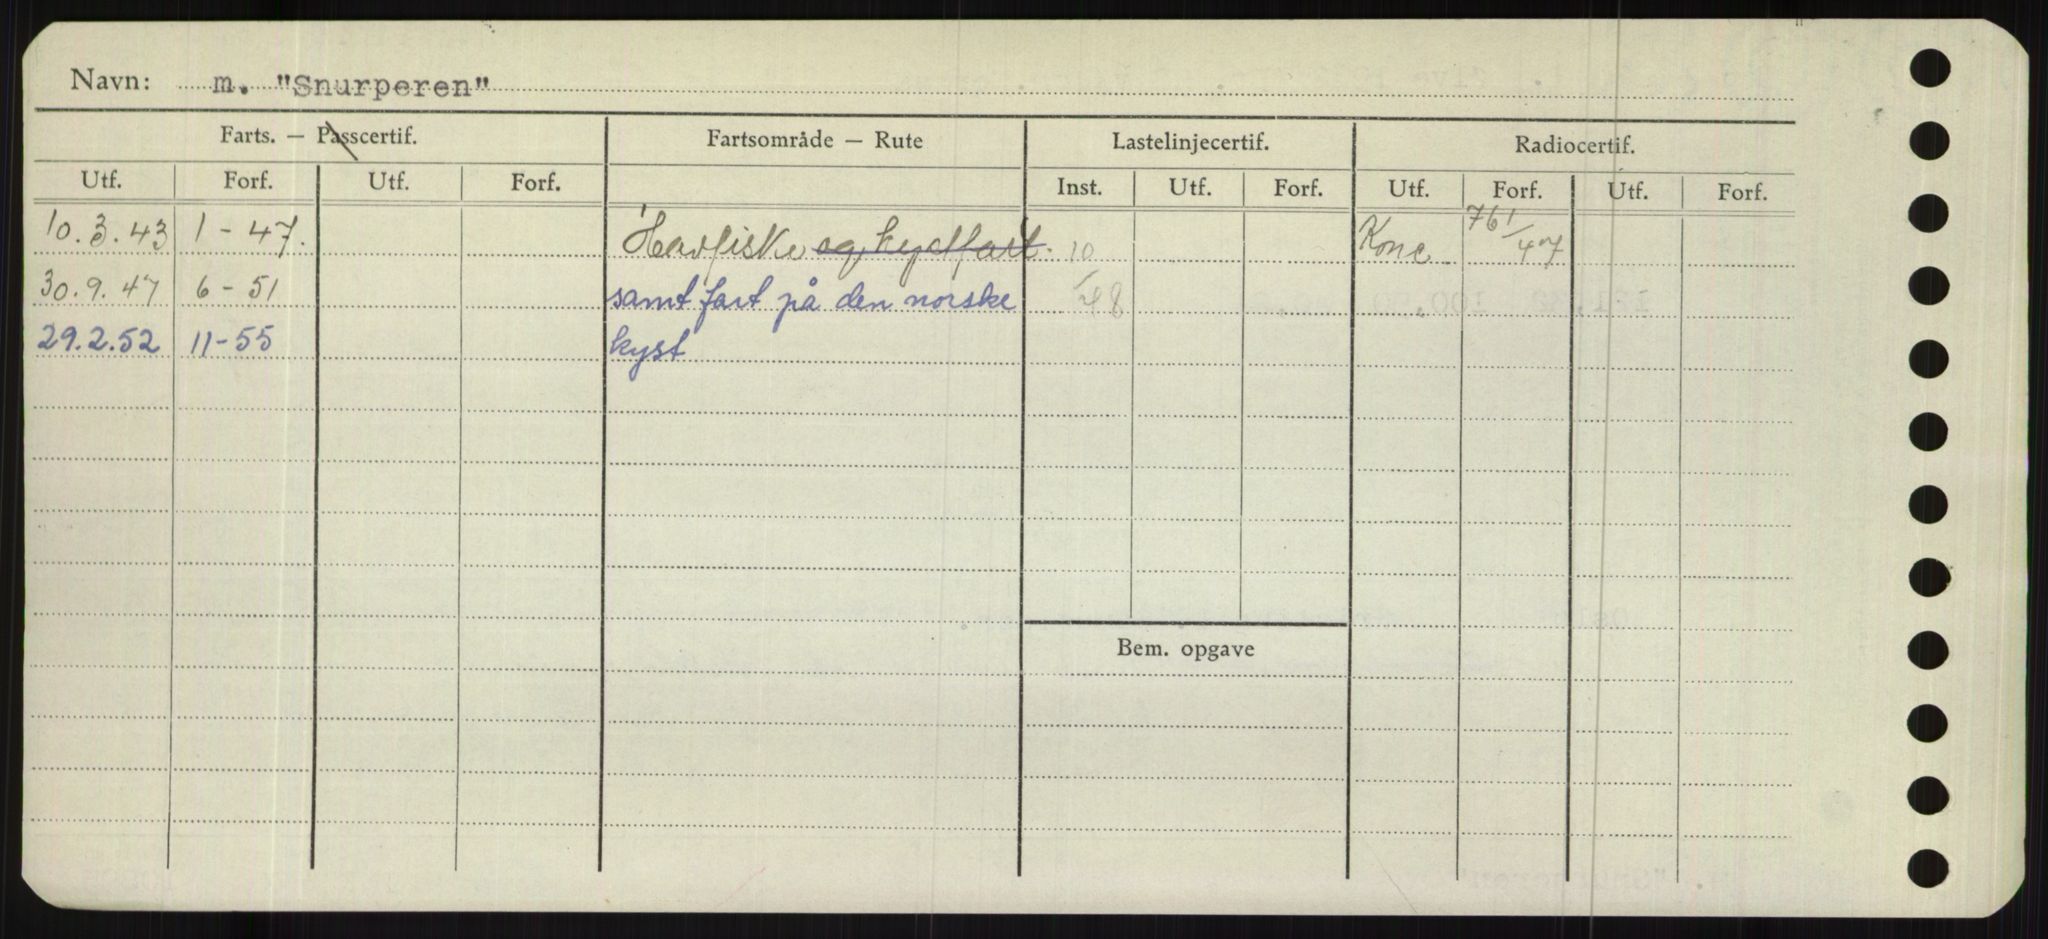 Navn: m. "Snurperen"
Farts. — Passcertif. Fartsområde — Rute Lastelinjecertif. Radiocertif.
Utf. Forf. Utf. Forf. Inst. Utf. Forf. Utf. Forf. Utf. Forf.
10.3.43 1-47. Havfiske og 10/ Konc. 761/47
30.9.47 6-51 samt fart på den norske 48
29.2.52 11-55 kyst
Bem. opgave